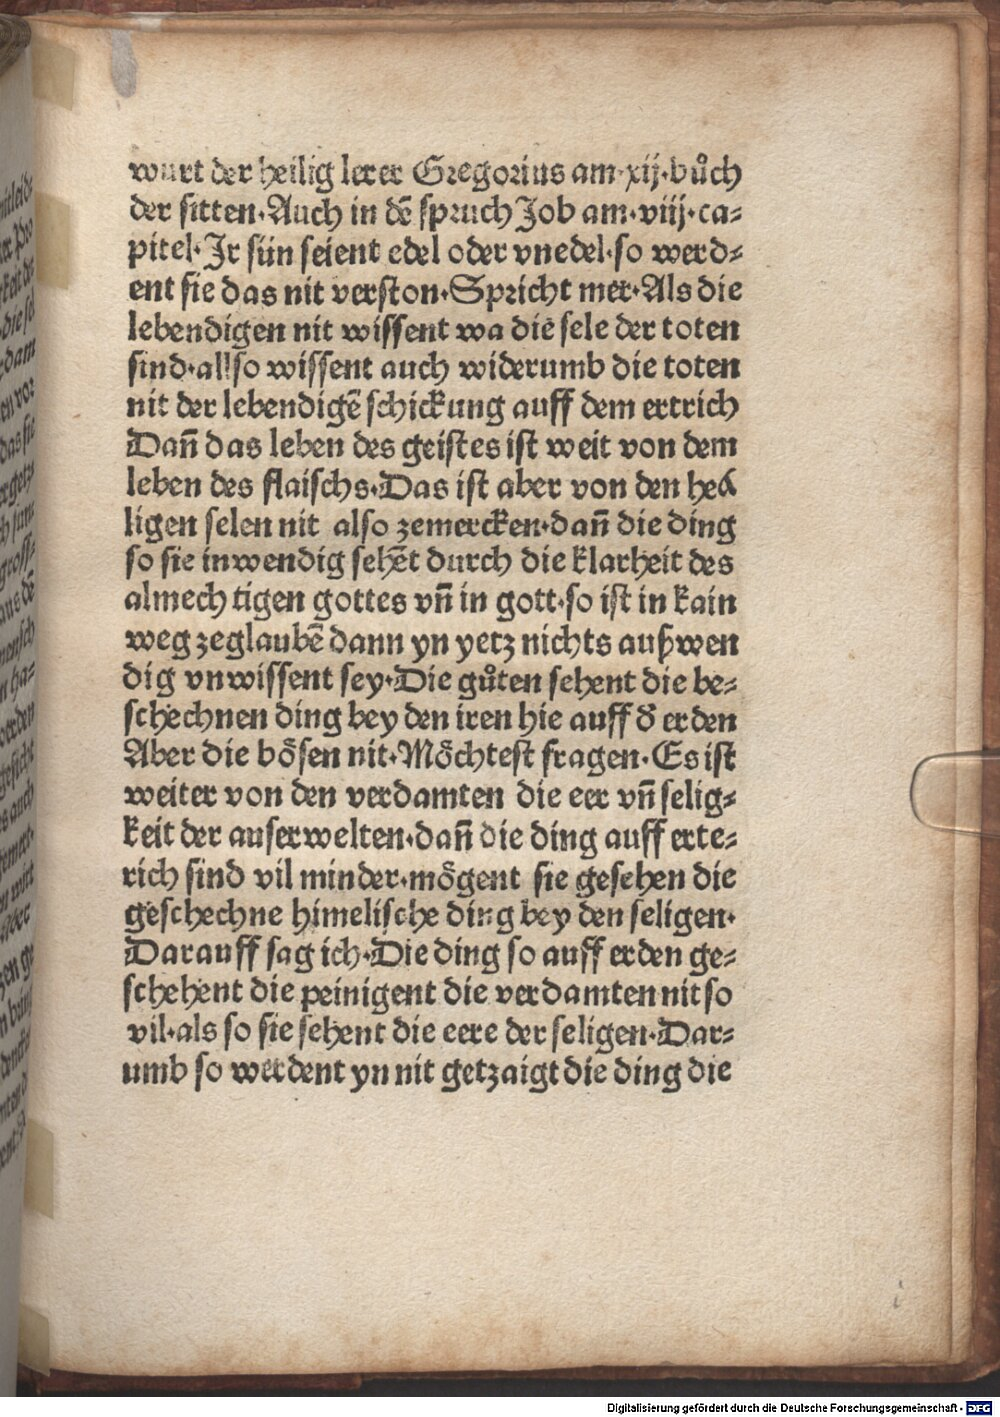 wurt der heilig lerer Gregorius am·xij·bůch
der sitten·Auch in dē spruch Job am·viij·ca⸗
pitel·Jr sün seient edel oder vnedel·so werd⸗
ent sie das nit verston·Spricht mer·Als die
lebendigen nit wissent wa die sele der toten
sind·allso wissent auch widerumb die toten
nit der lebendigē schickung auff dem ertrich
Dañ das leben des geistes ist weit von dem
leben des flaischs·Das ist aber von den hei
ligen selen nit also zemercken·dañ die ding
so sie inwendig sehēt durch die klarheit des
almechtigen gottes vñ in gott·so ist in kain
weg zeglaubē dann yn yetz nichts außwen
dig vnwissent sey·Die gůten sehent die be⸗
schechnen ding bey den iren hie auff ď erden
Aber die bösen nit·Möchtest fragen·Es ist
weiter von den verdamten die eer vñ selig⸗
keit der auserwelten·dañ die ding auff erte⸗
rich sind vil minder·mögent sie gesehen die
geschechne himelische ding bey den seligen·
Darauff sag ich·Die ding so auff erden ge⸗
schehent die peinigent die verdamten nit so
vil·als so sie sehent die eere der seligen·Dar⸗
umb so werdent yn nit getzaigt die ding die
Digitalisierung gefördert durch die Deutsche Forschungsgemeinschaft - DFG